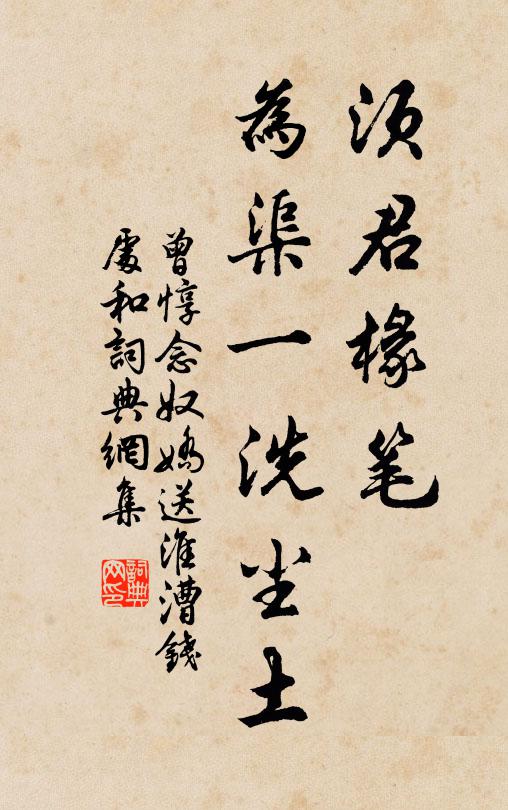 须君椽笔
為渠一洗尘土
曾惇念奴嬌送淮漕錢
處和詞典網集
詞典
网印